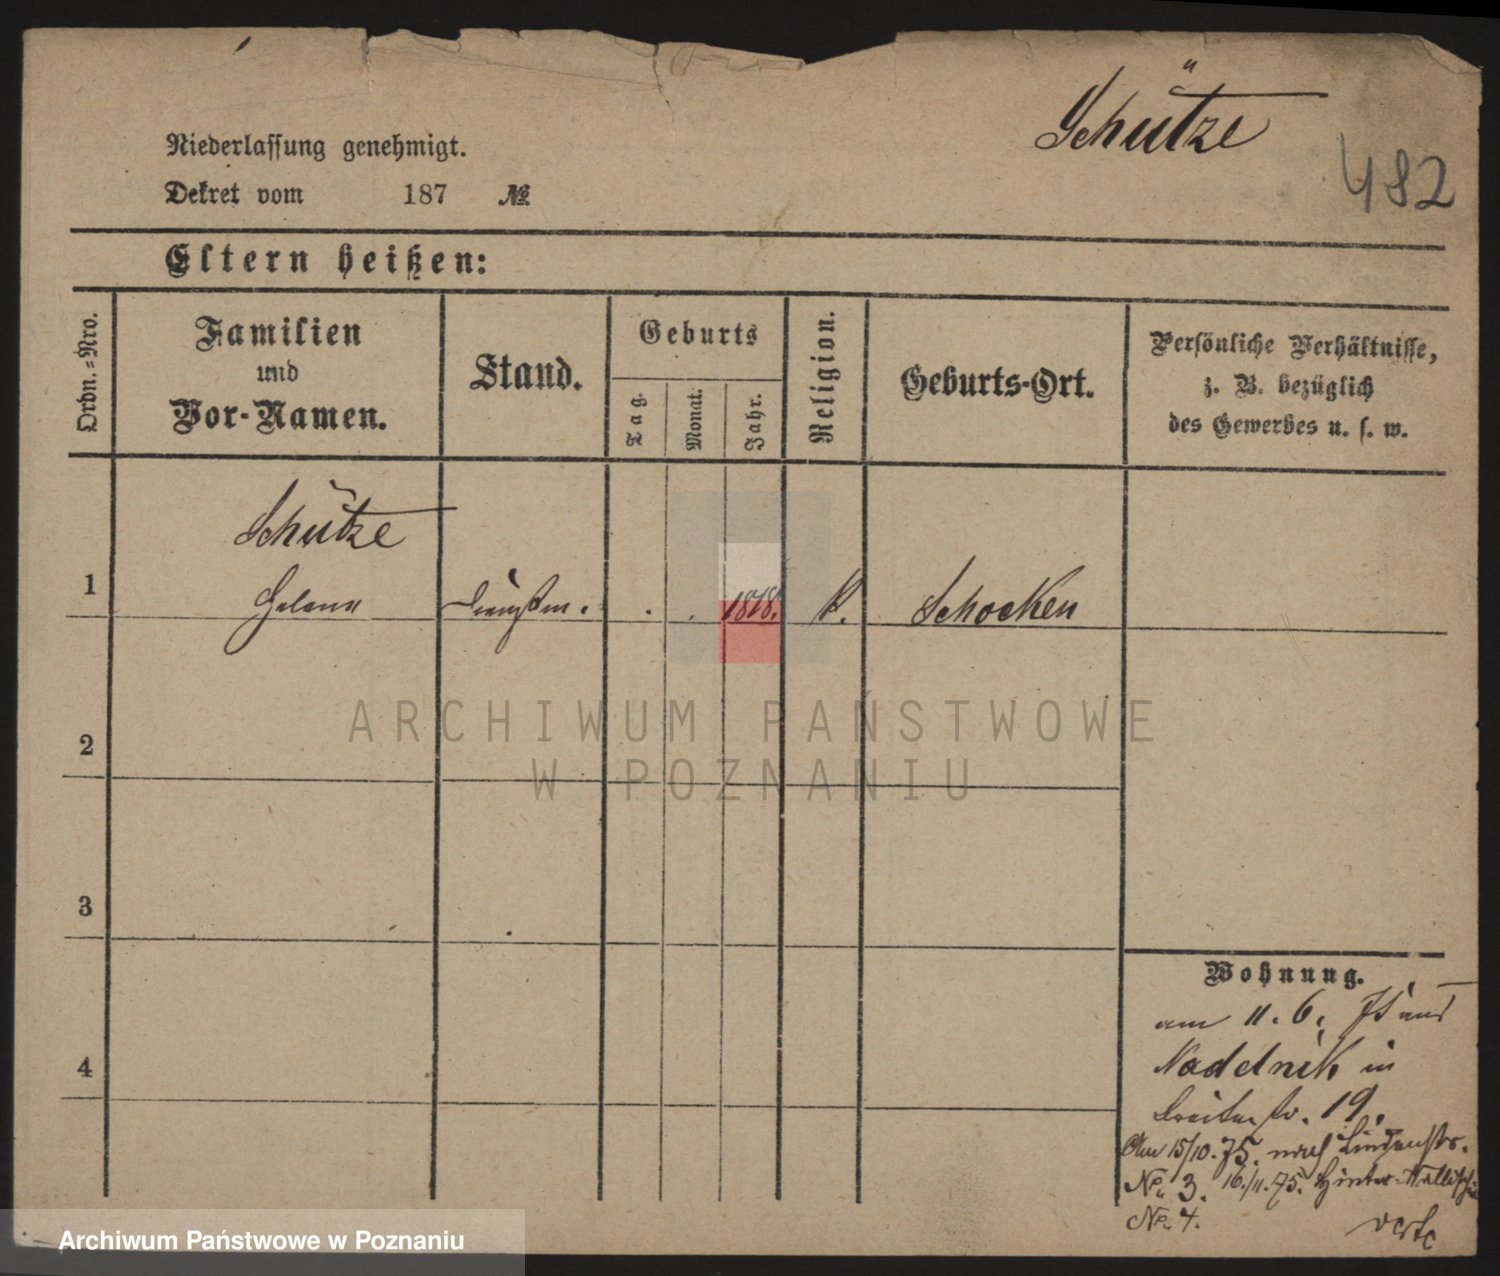 Schütze
482
Niederlassung genehmigt.
Dekret vom 187 №
Eltern heißen:
Ordn.-Nro.
Familien
und
Vor-Namen.
Stand.
Geburts
Tag.
Monat.
Jahr.
Religion.
Geburts-Ort.
Persönliche Verhältnisse,
z. B. bezüglich
des Gewerbes u. s. w.
Schütze
1 Helena Dienstm. . . 1818. k. Schocken
2
3
4
Wohnung.
am 11. 6. 75 aus
Nadelnik in
Breitestr. 19.
Am 15/10. 75. nach Lindenstr.
No. 3. 16./11. 75. Hinter-Wallischei
No. 4. verte
ARCHIWUM PAŃSTWOWE
W POZNANIU
Archiwum Państwowe w Poznaniu